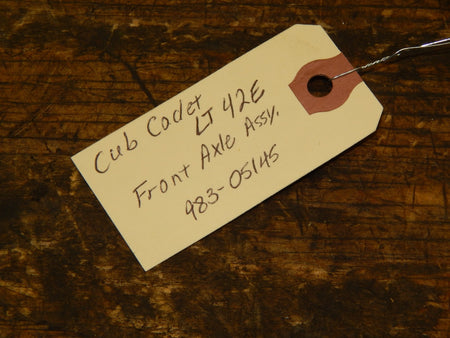 Cub Cadet
LT 42E
Front Axle Assy.
983-05145